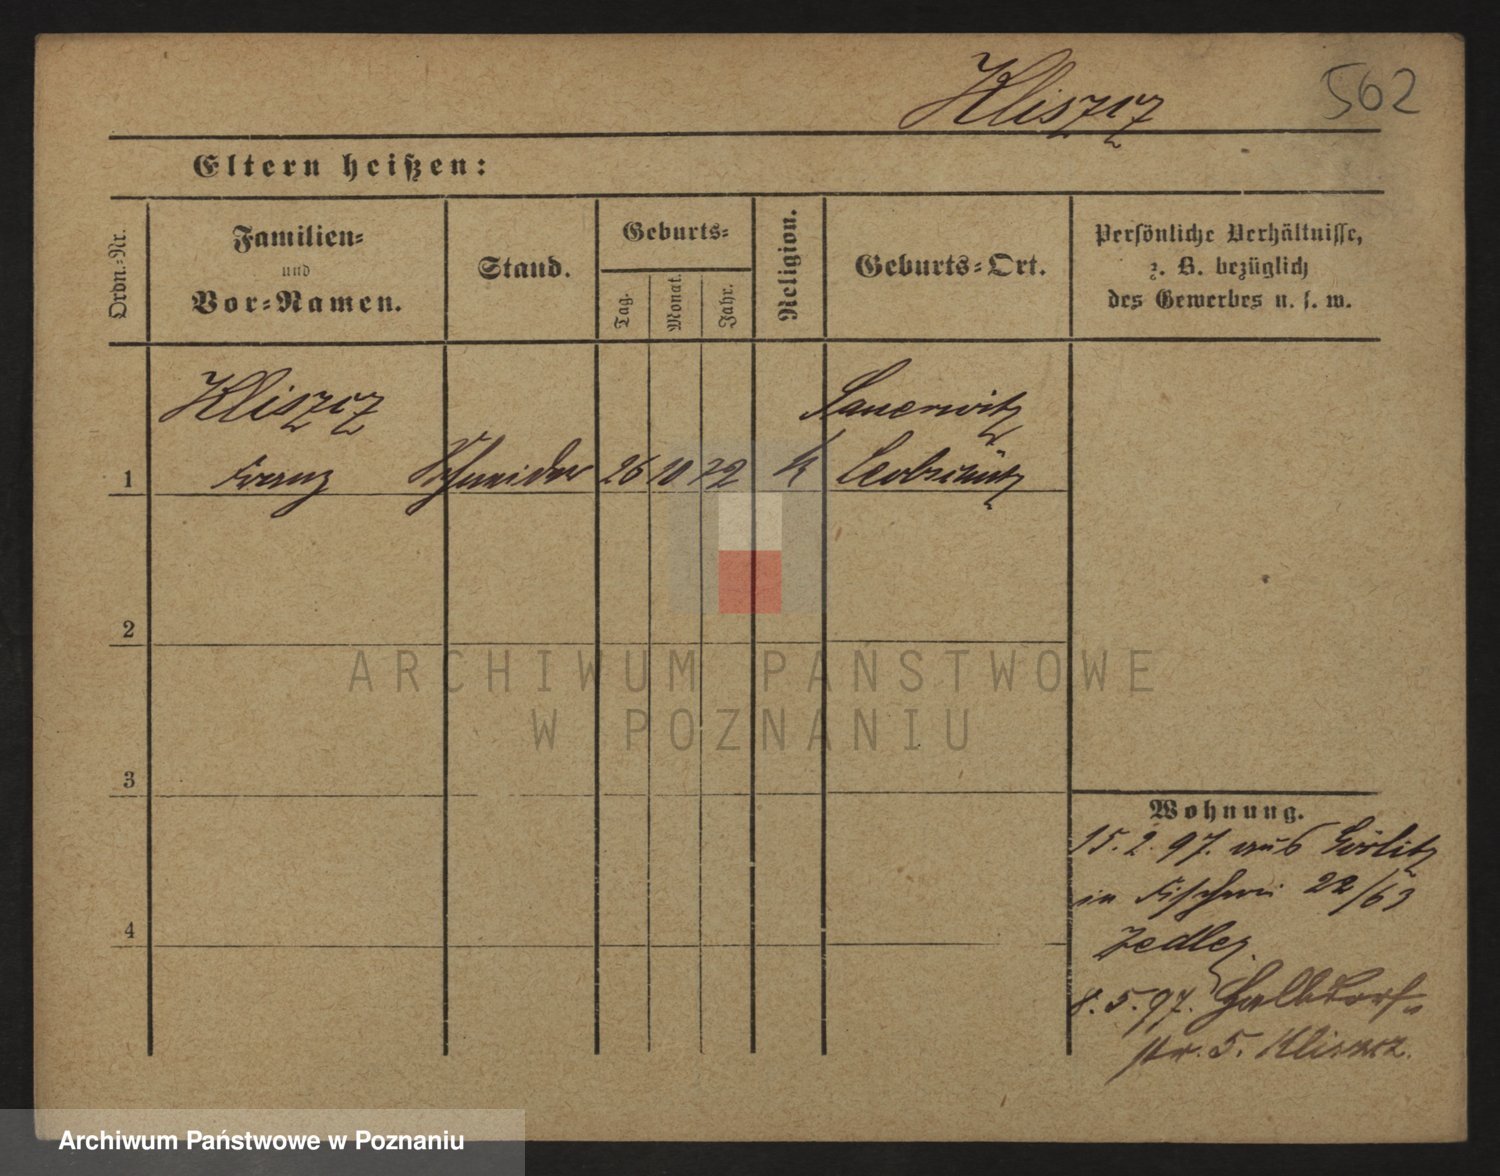 Kliszcz
562
Eltern heißen:
Ordn.-Nr.
Familien-
und
Vor-Namen.
Stand.
Geburts-
Tag.
Monat.
Jahr.
Religion.
Geburts-Ort.
Persönliche Verhältnisse,
z. B. bezüglich
des Gewerbes u. s. w.
Kliszcz
Sauerwitz
1 Franz Schneider 26 10 72 k Leobschütz
2
3
4
ARCHIWUM PAŃSTWOWE
W POZNANIU
Wohnung.
15. 2. 97. aus Görlitz
in Fischerei 22/63
Zedler.
8. 5. 97. Halbdorf-
str. 5. Kliszcz.
Archiwum Państwowe w Poznaniu